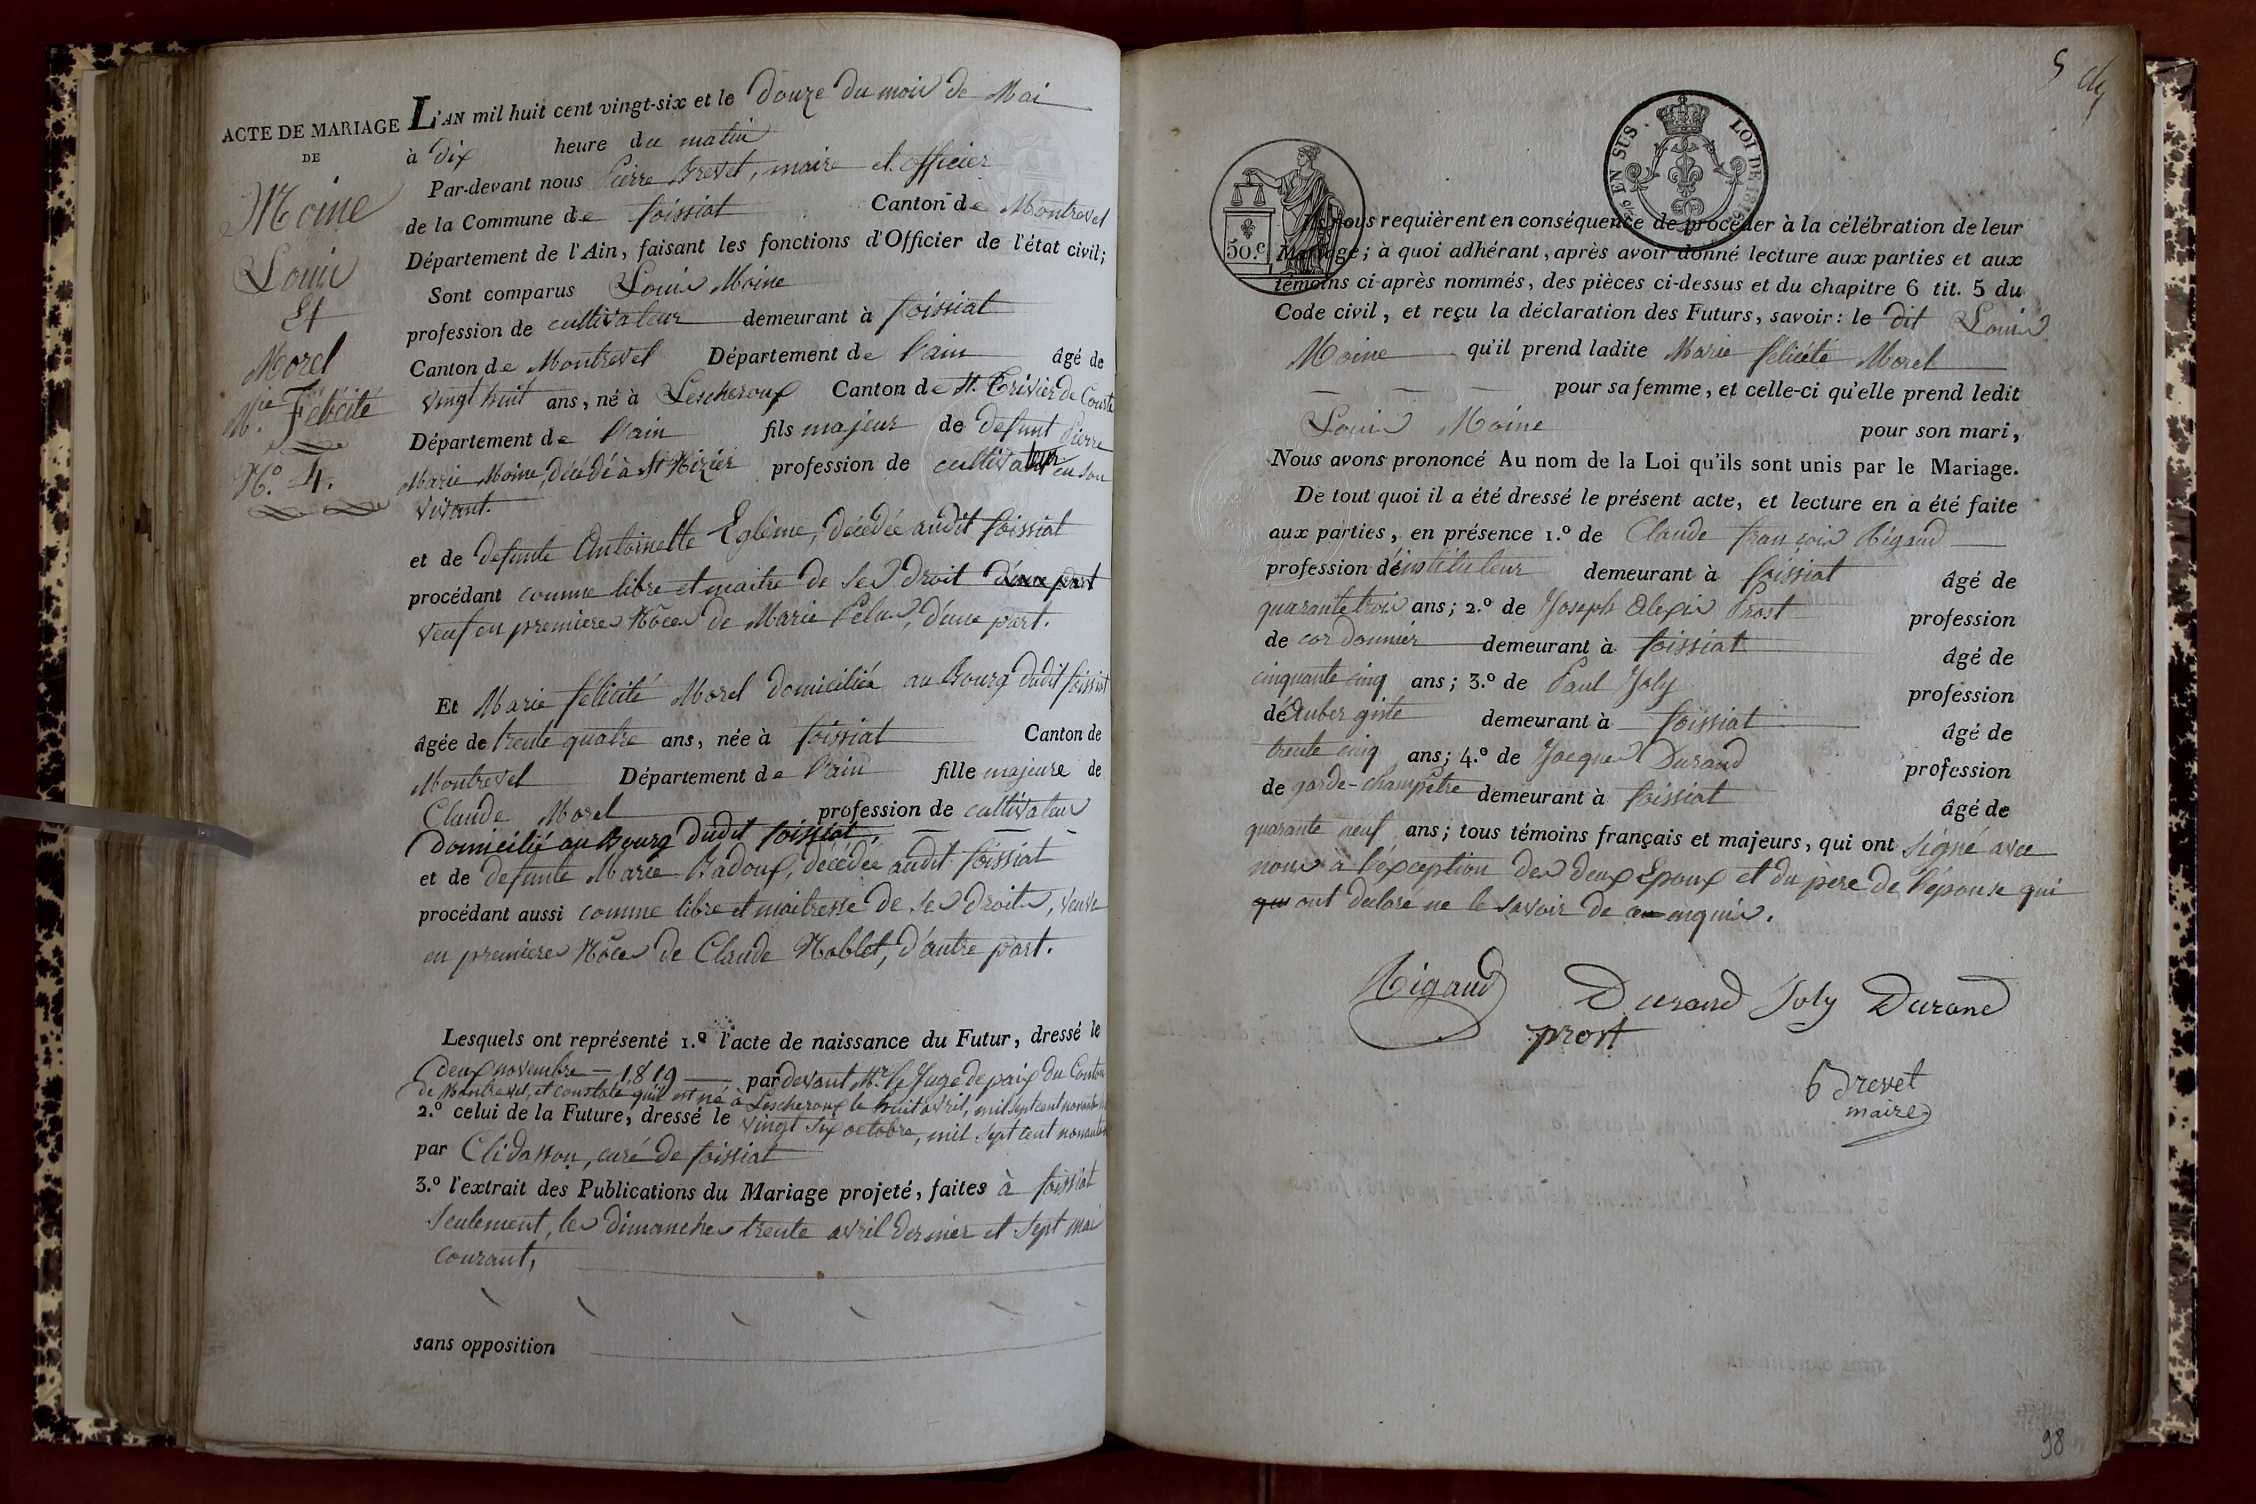 ACTE DE MARIAGE
DE
Moine
Louis
Et
Morel
Mie. Félicité
No. 4.
L'AN mil huit cent vingt-six et le douze du mois de Mai
à dix heure du matin
Par-devant nous Pierre Brevet, maire et officier
de la Commune de foissiat Canton de Montrevel
Département de l'Ain, faisant les fonctions d'Officier de l'état civil;
Sont comparus Louis Moine
profession de cultivateur demeurant à foissiat
Canton de Montrevel Département de l'ain âgé de
vingt huit ans, né à Lescheroux Canton de St. Trivier de Courtes
Département de l'ain fils majeur de defunt Pierre
Marie Moine, décédé à St Nizier profession de cultivateur en son
vivant.
et de defunte Antoinette Eglème, décédée audit foissiat
procédant comme libre et maitre de ses droit d'une part
veuf en premieres Nôces de Marie Pelus, d'une part.
Et Marie félicité Morel domiciliée au Bourg dudit foissiat
âgée de trente quatre ans, née à foissiat Canton de
Montrevel Département de l'ain fille majeure de
Claude Morel profession de cultivateur
domicilié au Bourg dudit foissiat,
et de defunte Marie Badoux, décédée audit foissiat
procédant aussi comme libre et maitresse de ses droits, veuve
en premieres Nôces de Claude Noblet, d'autre part.
Lesquels ont représenté 1.º l'acte de naissance du Futur, dressé le
deux novembre 1819 par devant Mr. le Juge de paix du Canton
de Montrevel, et constate qu'il est né à Lescheroux le huit avril, mil sept cent
2.º celui de la Future, dressé le vingt six octobre, mil sept cent
par Clidasson, curé de foissiat
3.º l'extrait des Publications du Mariage projeté, faites à foissiat
seulement, les dimanches trente avril dernier et sept mai
courant,
sans opposition
5
EN SUS LOI DE
50.c
Ils nous requièrent en conséquence de procéder à la célébration de leur
Mariage; à quoi adhérant, après avoir donné lecture aux parties et aux
témoins ci-après nommés, des pièces ci-dessus et du chapitre 6 tit. 5 du
Code civil, et reçu la déclaration des Futurs, savoir: le dit Louis
Moine qu'il prend ladite Marie félicité Morel
pour sa femme, et celle-ci qu'elle prend ledit
Louis Moine pour son mari,
Nous avons prononcé Au nom de la Loi qu'ils sont unis par le Mariage.
De tout quoi il a été dressé le présent acte, et lecture en a été faite
aux parties, en présence 1.º de Claude françois Rigaud
profession d'instituteur demeurant à foissiat âgé de
quarante trois ans; 2.º de Joseph Alexis Prost profession
de cordonnier demeurant à foissiat âgé de
cinquante cinq ans; 3.º de Paul Joly profession
d'Aubergiste demeurant à foissiat âgé de
trente cinq ans; 4.º de Jacques Durand profession
de garde-champêtre demeurant à foissiat âgé de
quarante neuf ans; tous témoins français et majeurs, qui ont signé avec
nous à l'exception des deux Epoux et du père de l'épouse qui
qui ont declaré ne le savoir de ce enquis.
Rigaud Durand Joly Durand
prost
Brevet
maire
98